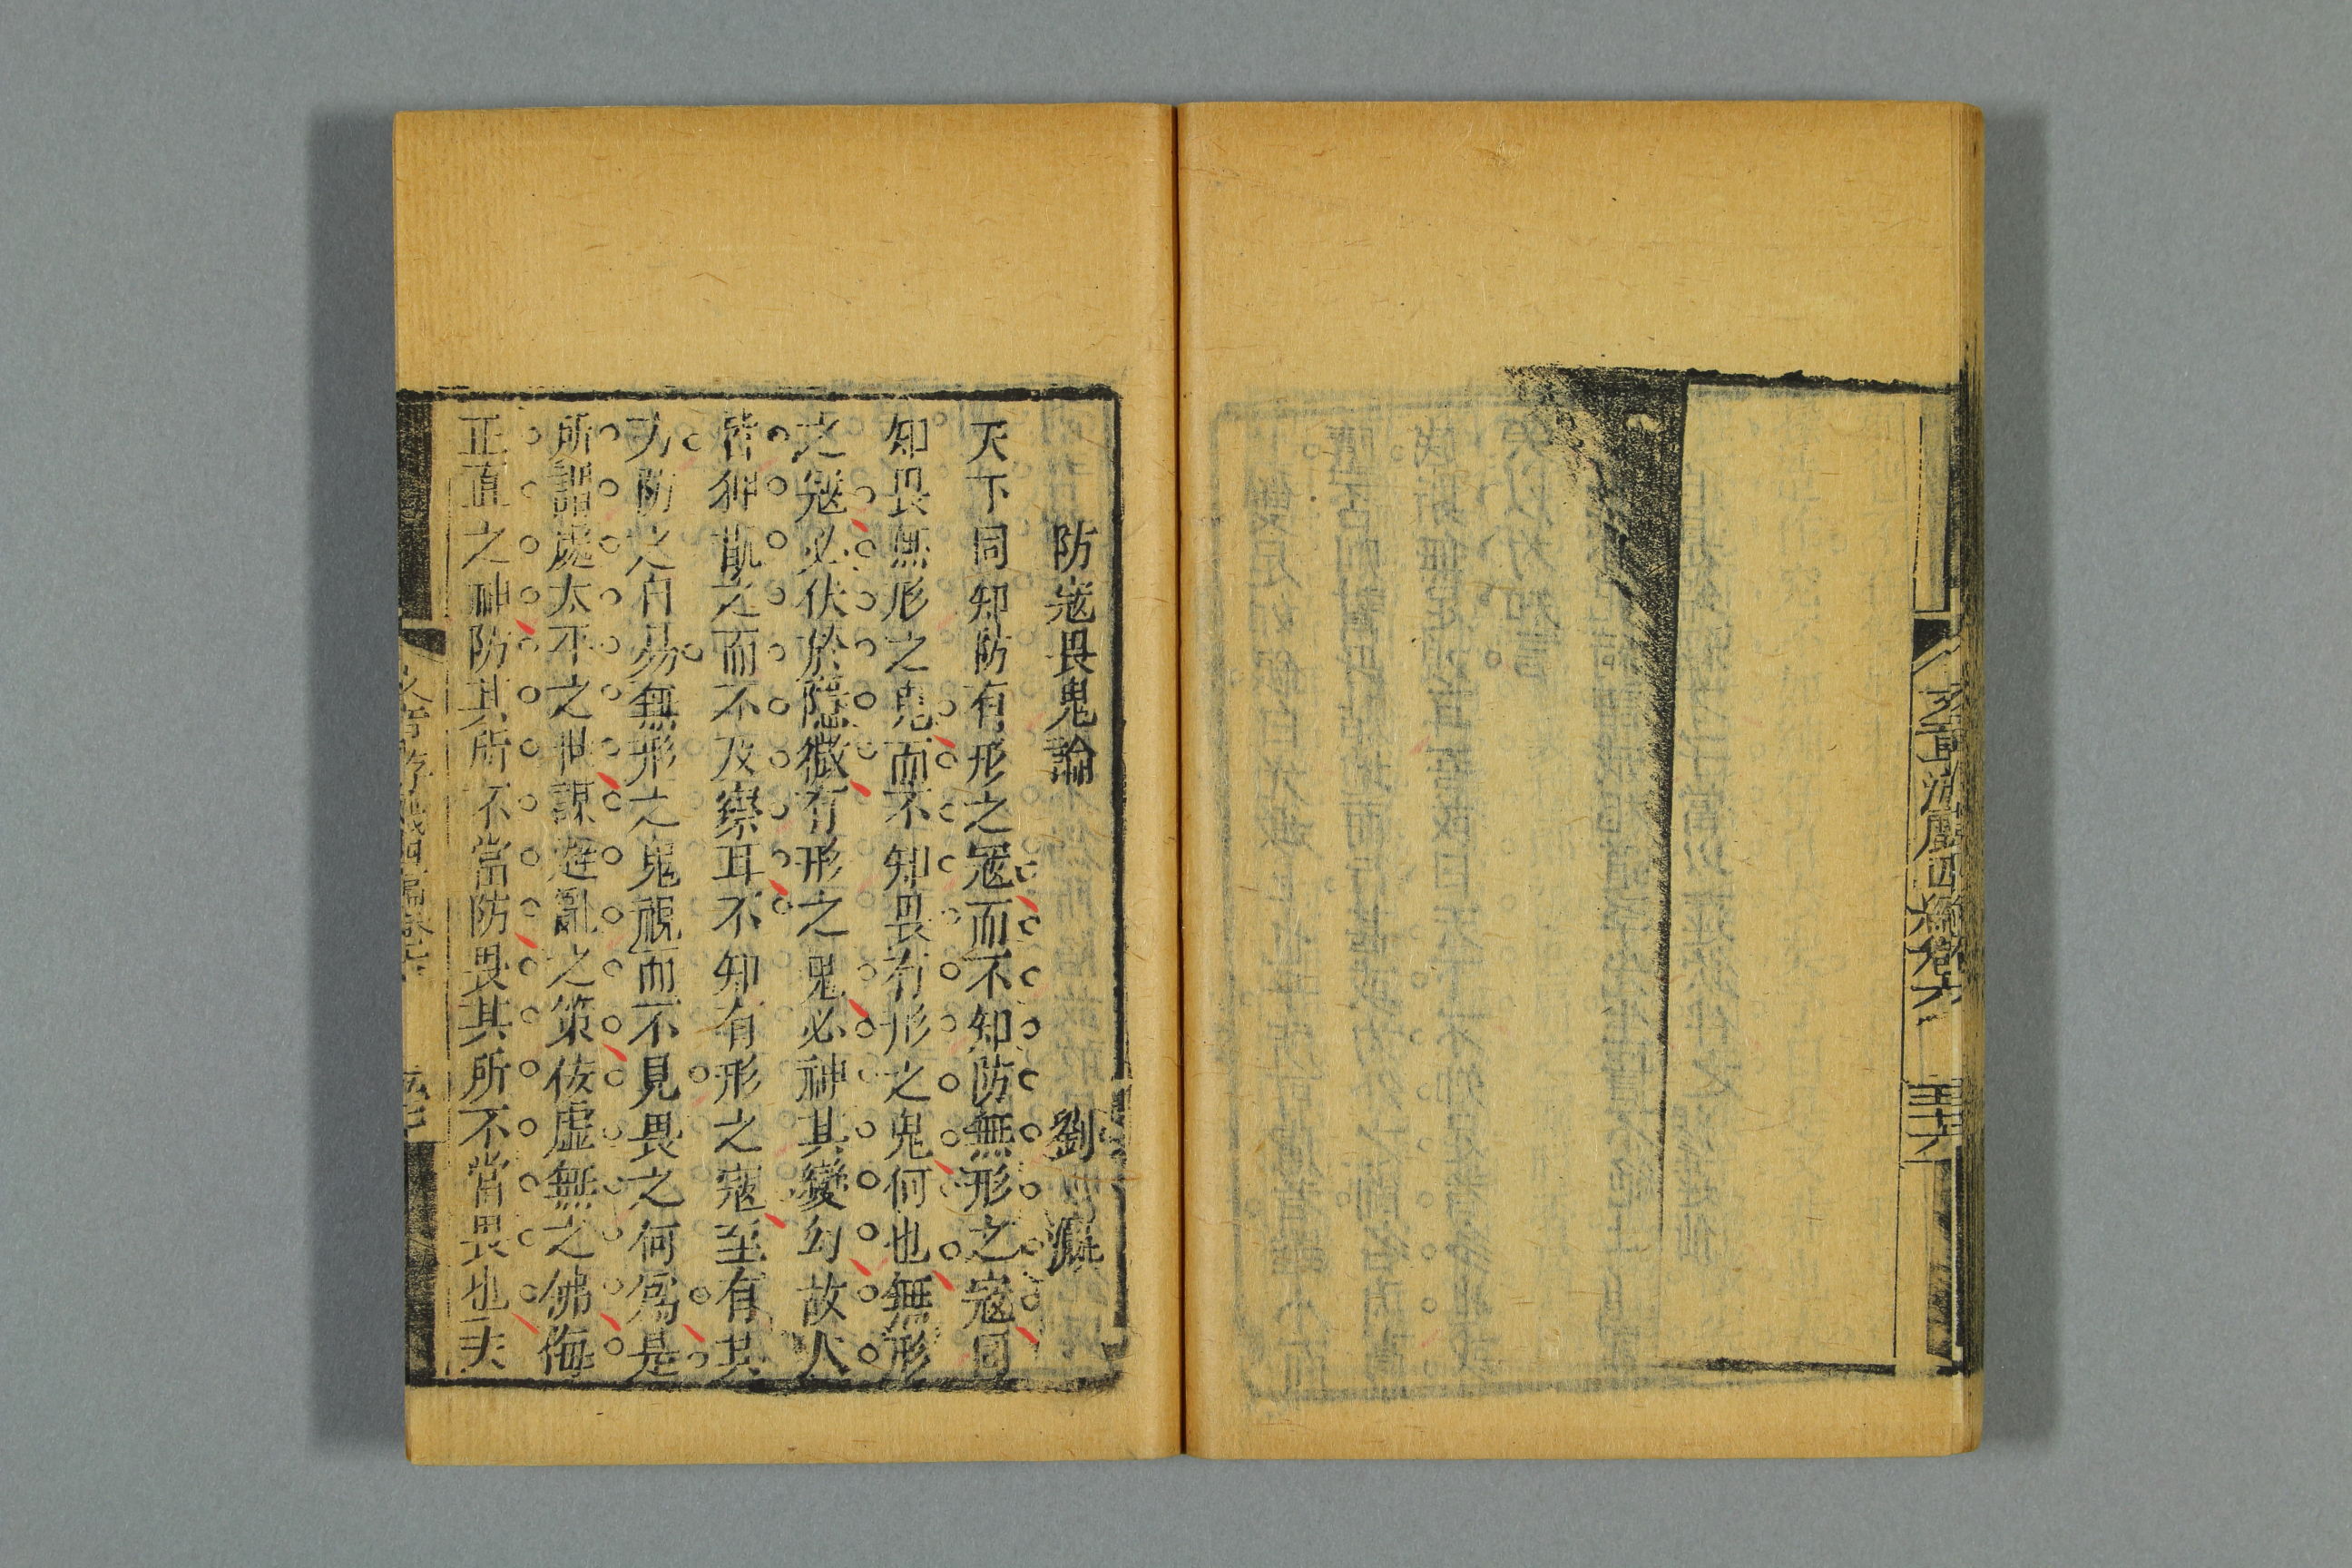 文章游戲四編卷六
防寇畏鬼論 劉
天下同知防有形之寇而不知防無形之寇同
知畏無形之鬼而不知畏有形之鬼何也無形
之寇必伏於隱微有形之鬼必神其變幻故人
皆狎翫之而不及察耳不知有形之寇至有其
力防之自易無形之鬼視而不見畏之何為是
所謂處太平之世謀避亂之策佞虛無之佛侮
正直之神防其所不當防畏其所不當畏也夫